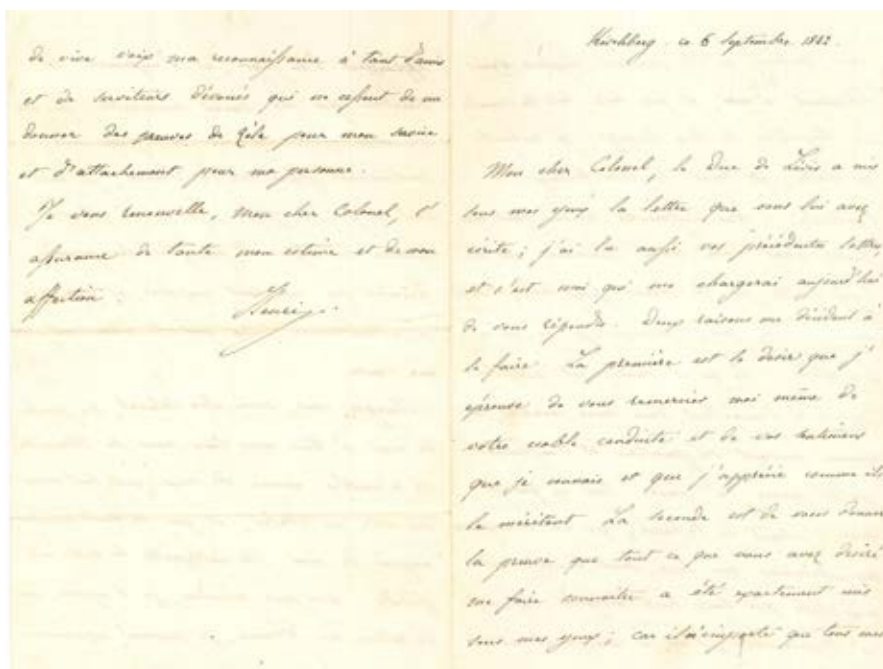 de vive voix ma reconnaissance à tant d'amis
et de serviteurs dévoués qui ne cessent de me
donner des preuves de zèle pour mon service
et d'attachement pour ma personne.
Je vous renouvelle, mon cher Colonel, l'
assurance de toute mon estime et de mon
affection
Henri
Kirchberg ce 6 Septembre
Mon cher Colonel, le Duc de Lévis a mis
sous mes yeux la lettre que vous lui avez
écrite; j'ai lu aussi vos précédentes lettres,
et c'est moi qui me chargerai aujourd'hui
de vous répondre. Deux raisons me décident à
le faire. La première est le désir que j'
éprouve de vous remercier moi même de
votre noble conduite et de vos sentimens
que je connais et que j'apprécie comme ils
le méritent. La seconde est de vous donner
la preuve que tout ce que vous avez désiré
me faire connaître a été exactement mis
sous mes yeux; car il m'importe que tous mes